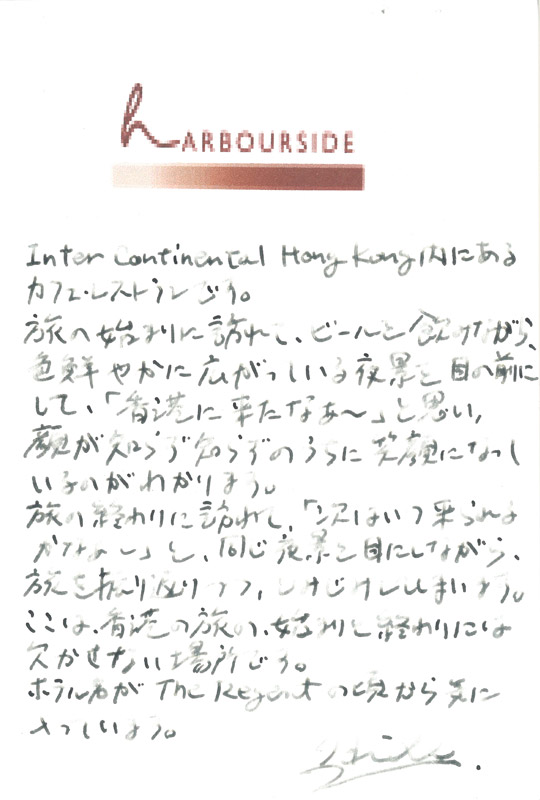 hARBOURSIDE
Inter Continental Hong Kong内にある
カフェ・レストランです。
旅の始まりに訪れて、ビールを飲みながら、
色鮮やかに広がっている夜景を目の前に
して、「香港に来たなぁ〜」と思い、
顔が知らず知らずのうちに笑顔になって
いるのがわかります。
旅の終わりに訪れて、「次はいつ来られる
かなぁ〜」と、同じ夜景を目にしながら、
旅を振り返りつつ、しみじみしてしまいます。
ここは、香港の旅の、始まりと終わりには
欠かせない場所です。
ホテル名が The Regent の頃から気に
入っています。